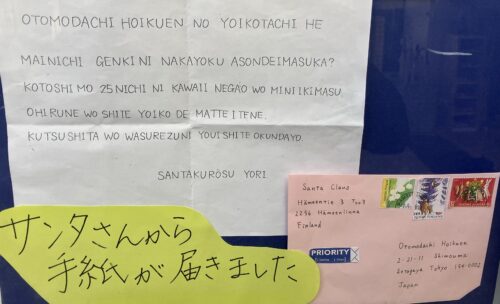 OTOMODACHI HOIKUEN NO YOIKOTACHI HE
MAINICHI GENKI NI NAKAYOKU ASONDEIMASUKA?
KOTOSHI MO 25NICHI NI KAWAII NEGAO WO MINI IKIMASU
OHIRUNE WO SHITE YOIKO DE MATTEITENE.
KUTSUSHITA WO WASUREZUNI YOUISHITE OKUNDAYO.
SANTAKUROSU YORI
サンタさんから
手紙が届きました
Santa Claus
Hämeentie 3
Hämeenlinna
Finland
PRIORITY
Otomodachi Hoikuen
2-21-11 Shimouma
Setagaya Tokyo 154-0002
Japan